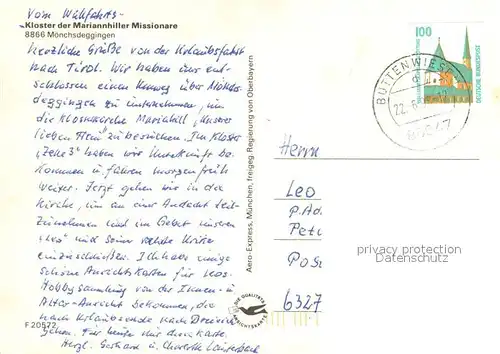 Vom Wallfahrts-
Kloster der Mariannhiller Missionare
8866 Mönchsdeggingen
herzliche Grüße von der Urlaubsfahrt
nach Tirol. Wir haben uns ent-
schlossen einen Umweg über Mönchs-
deggingen zu unternehmen, um
die Klosterkirche Mariahilf, "Unserer
lieben Frau" zu besuchen. Im Kloster
haben wir Unterkunft be-
kommen u. fahren morgen früh
weiter. Jetzt gehen wir in die
Kirche, um an einer Andacht teil-
zunehmen und im Gebet unseren
"Leo" und seine
einzuschließen. Ich habe einige
schöne Ansichtskarten für Leos
Hobbysammlung von der Innen- u.
Altar-Ansicht bekommen, die
nach Urlaubsende nach Dreieich
gehen. Für heute nur diese Karte.
Herzl. Gerhard u.
F 20572
Aero-Express, München, freigeg. Regierung von Oberbayern
DIE QUALITÄTS
ANSICHTSKARTE
100
DEUTSCHE BUNDESPOST
BUTTENWIESEN
22.
Herrn
Leo
P.Ad.
Pet
Pos
6327
privacy protection
Datenschutz